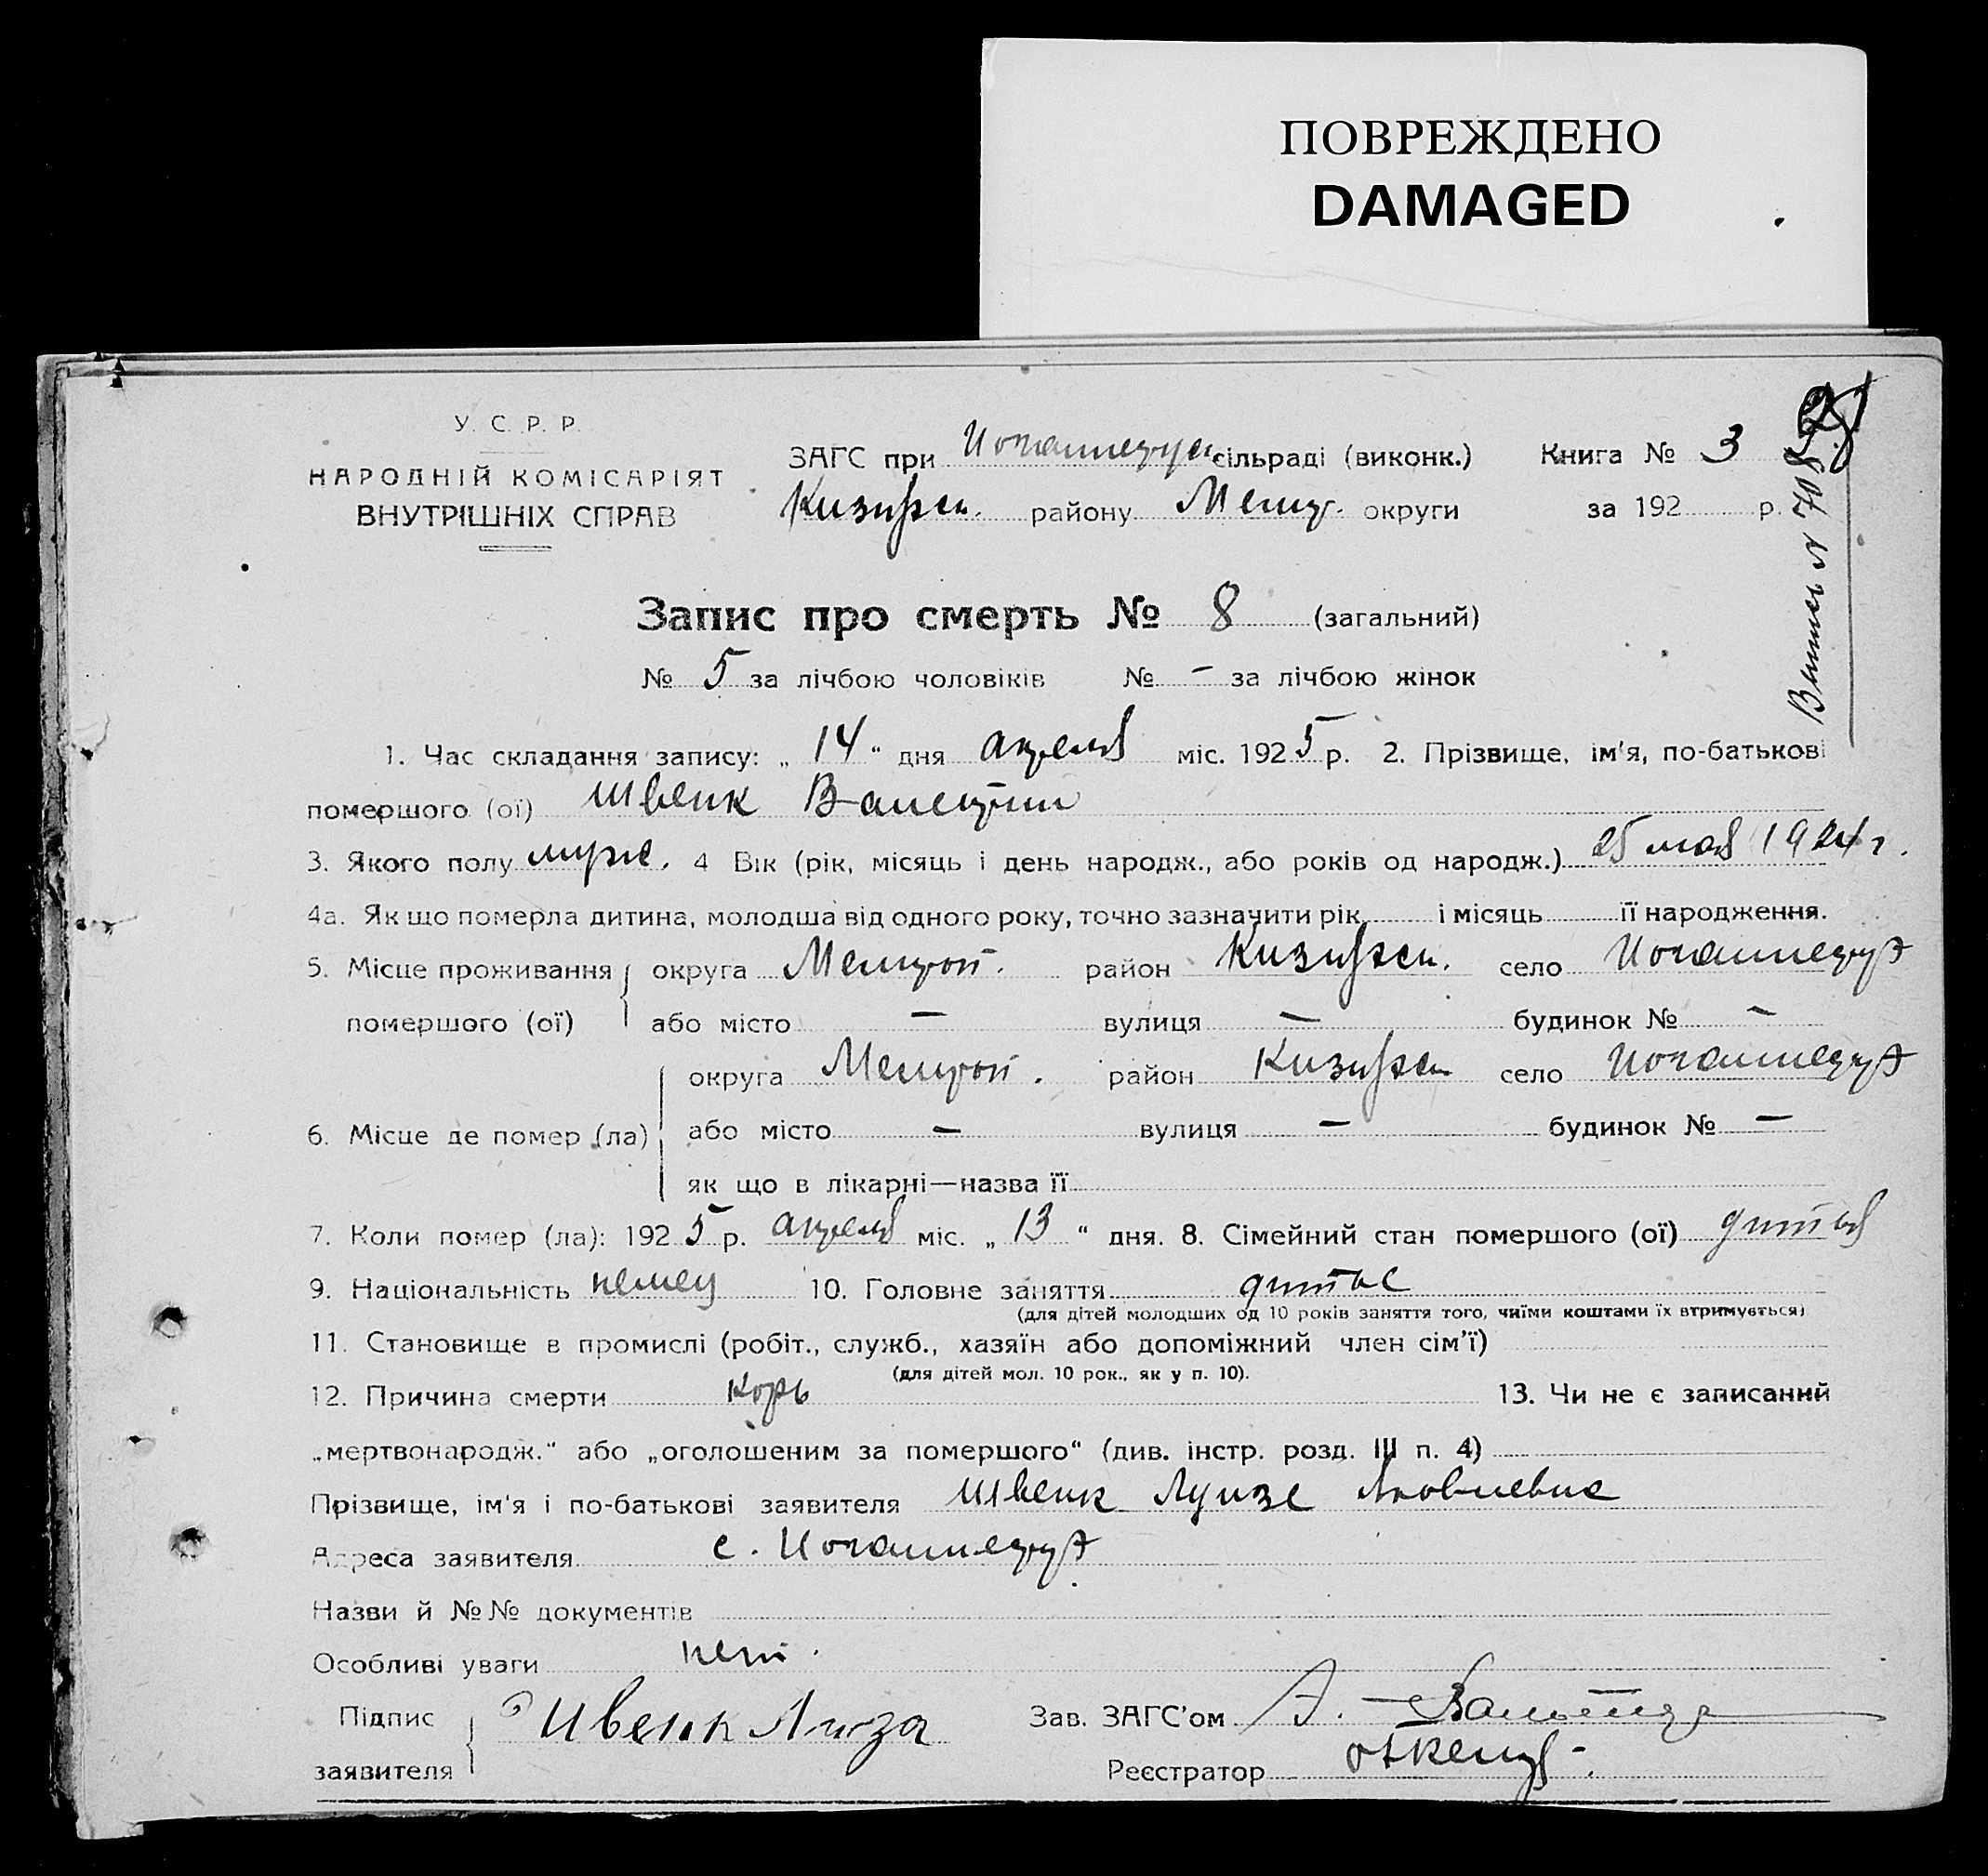 ПОВРЕЖДЕНО
DAMAGED
У. С. Р. Р.
НАРОДНІЙ КОМІСАРІЯТ
ВНУТРІШНІХ СПРАВ
ЗАГС при сільраді (виконк.) Книга № 3
району округи за 192 р.
Запис про смерть № 8 (загальний)
№ 5 за лічбою чоловіків № – за лічбою жінок
1. Час складання запису: „ 14 “ дня апреля міс. 1925 р. 2. Прізвище, ім'я, по-батькові
помершого (ої) Швенк Валентин
3. Якого полу муж. 4 Вік (рік, місяць і день народж., або років од народж.) 25 мая 1924 г.
4а. Як що померла дитина, молодша від одного року, точно зазначити рік і місяць її народження.
5. Місце проживання округа район село
помершого (ої) або місто – вулиця – будинок № –
округа район село
6. Місце де помер (ла) або місто – вулиця – будинок № –
як що в лікарні—назва її
7. Коли помер (ла): 1925 р. апреля міс. „ 13 “ дня. 8. Сімейний стан помершого (ої) дитя
9. Національність немец 10. Головне заняття дитя
(для дітей молодших од 10 років заняття того, чиїми коштами їх втримується)
11. Становище в промислі (робіт., служб., хазяїн або допоміжний член сім'ї)
(для дітей мол. 10 рок., як у п. 10).
12. Причина смерти корь 13. Чи не є записаний
„мертвонародж.“ або „оголошеним за помершого“ (див. інстр. розд. III п. 4)
Прізвище, ім'я і по-батькові заявителя Швенк Луизе Яковлевна
Адреса заявителя с.
Назви й №№ документів
Особливі уваги нет.
Підпис Швенк Луиза Зав. ЗАГС'ом
заявителя Реєстратор